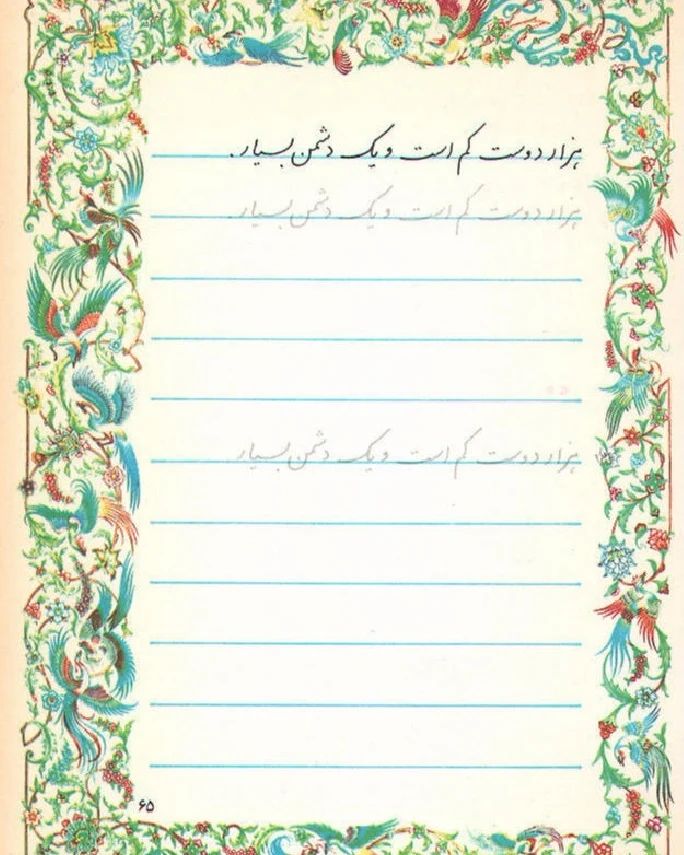 هزار دوست کم است و یک دشمن بسیار.
هزار دوست کم است و یک دشمن بسیار
هزار دوست کم است و یک دشمن بسیار
۶۵